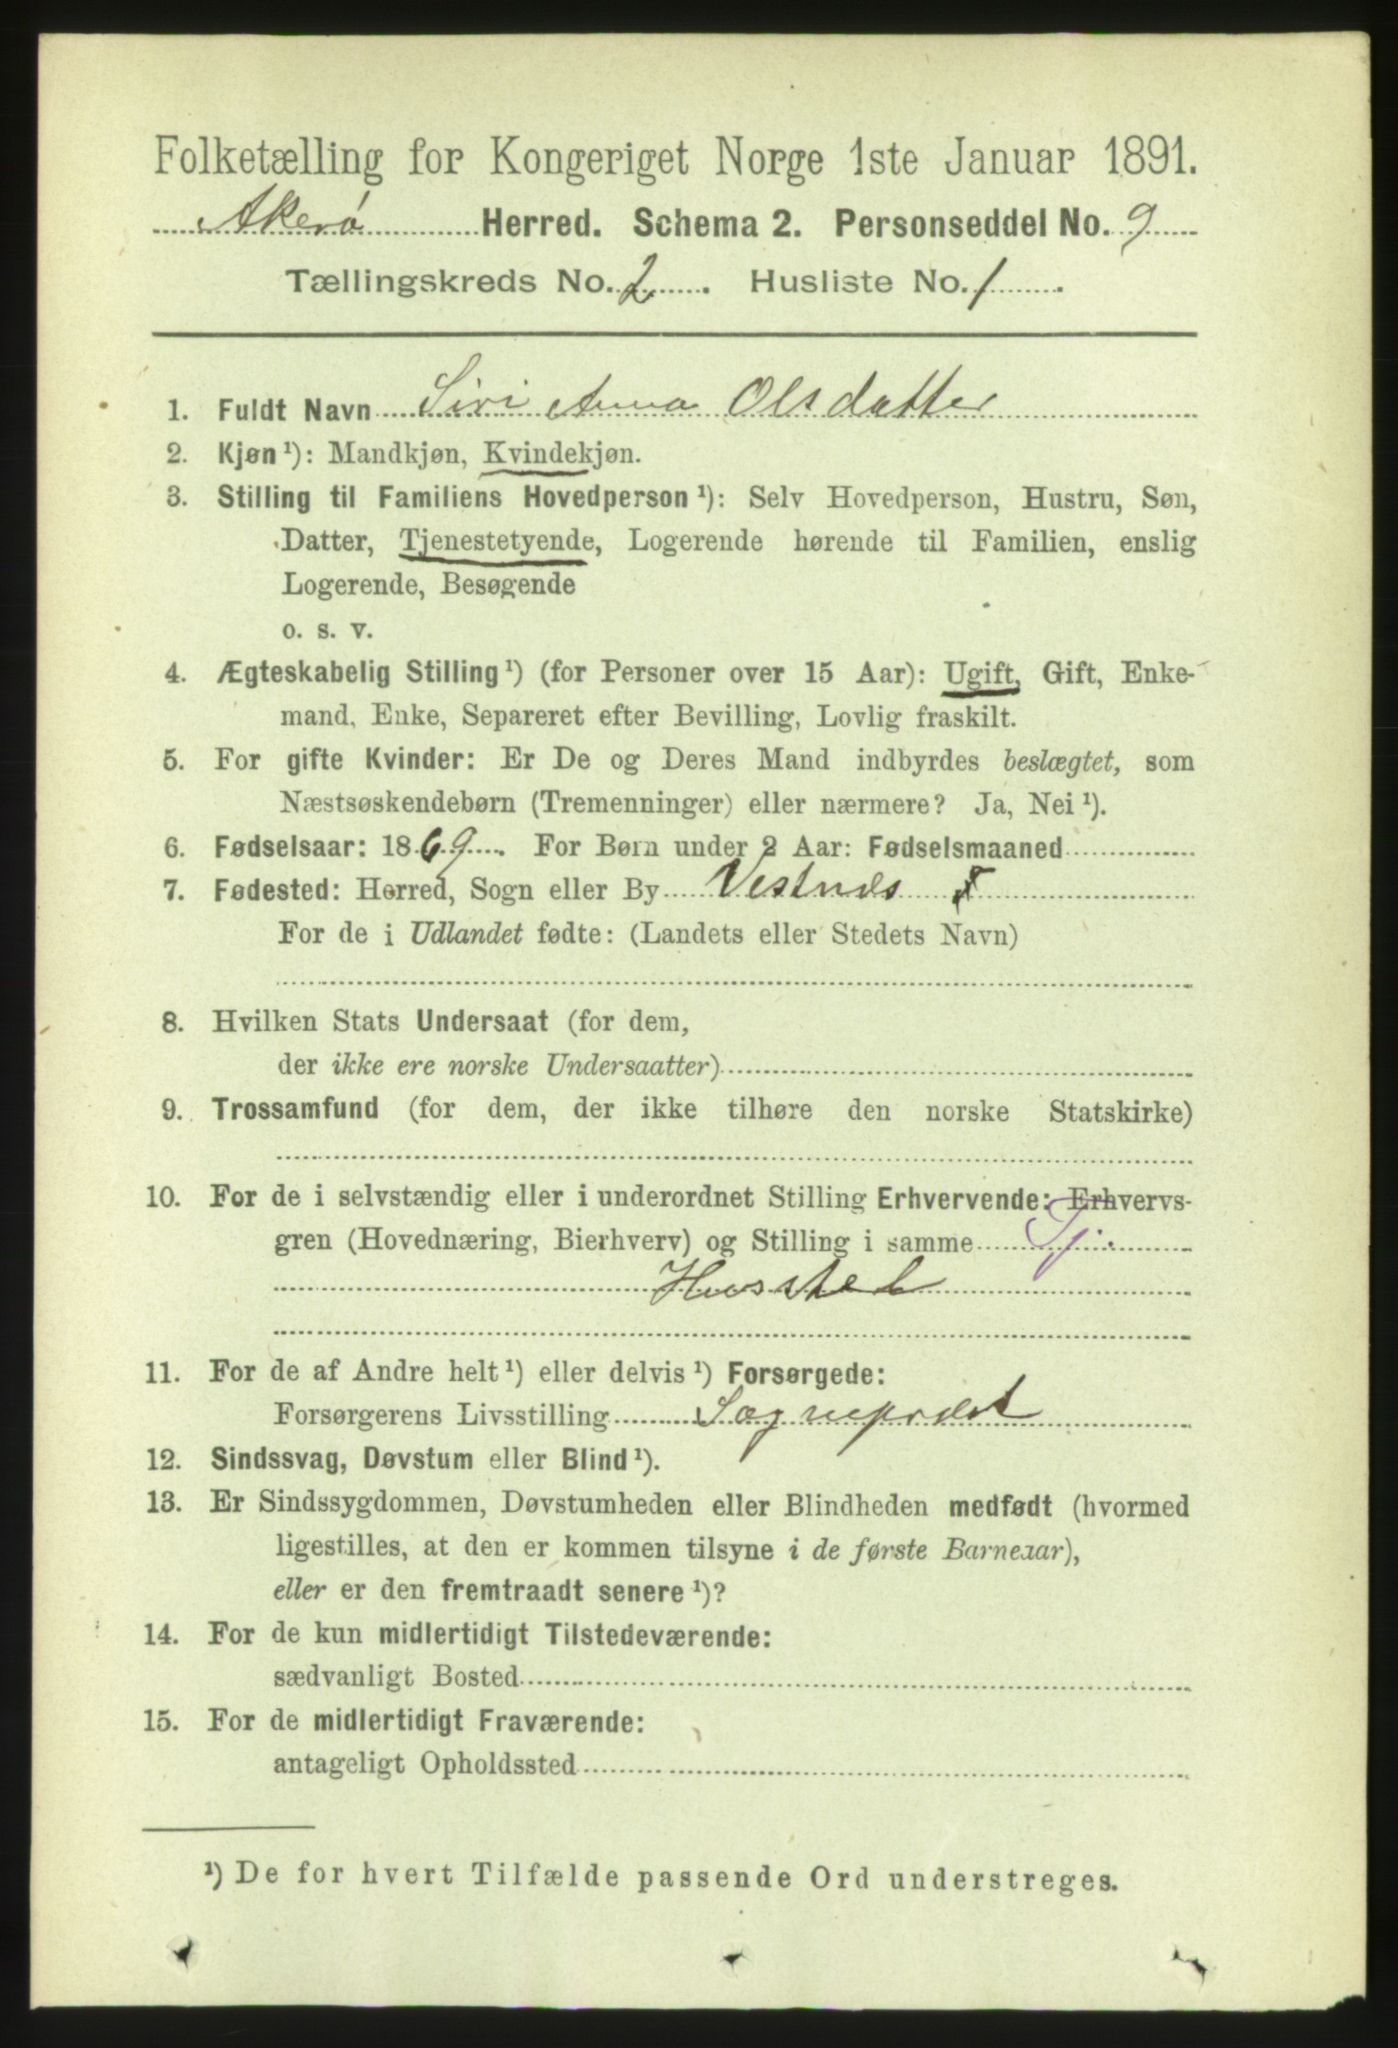 Folketælling for Kongeriget Norge 1ste Januar 1891.
Akerø Herred. Schema 2. Personseddel No. 9
Tællingskreds No. 2. Husliste No. 1.
1. Fuldt Navn Sivi Anna Olsdatter
2. Kjøn ¹): Mandkjøn, Kvindekjøn.
3. Stilling til Familiens Hovedperson ¹): Selv Hovedperson, Hustru, Søn,
Datter, Tjenestetyende, Logerende hørende til Familien, enslig
Logerende, Besøgende
o. s. v.
4. Ægteskabelig Stilling ¹) (for Personer over 15 Aar): Ugift, Gift, Enke-
mand, Enke, Separeret efter Bevilling, Lovlig fraskilt.
5. For gifte Kvinder: Er De og Deres Mand indbyrdes beslægtet, som
Næstsøskendebørn (Tremenninger) eller nærmere? Ja, Nei ¹).
6. Fødselsaar: 1869. For Børn under 2 Aar: Fødselsmaaned
7. Fødested: Herred, Sogn eller By Vestnæs
For de i Udlandet fødte: (Landets eller Stedets Navn)
8. Hvilken Stats Undersaat (for dem,
der ikke ere norske Undersaatter)
9. Trossamfund (for dem, der ikke tilhøre den norske Statskirke)
10. For de i selvstændig eller i underordnet Stilling Erhvervende: Erhvervs-
gren (Hovednæring, Bierhverv) og Stilling i samme Tj.
Husstel
11. For de af Andre helt ¹) eller delvis ¹) Forsørgede:
Forsørgerens Livsstilling Sognepræst
12. Sindssvag, Døvstum eller Blind ¹).
13. Er Sindssygdommen, Døvstumheden eller Blindheden medfødt (hvormed
ligestilles, at den er kommen tilsyne i de første Barneaar),
eller er den fremtraadt senere ¹)?
14. For de kun midlertidigt Tilstedeværende:
sædvanligt Bosted
15. For de midlertidigt Fraværende:
antageligt Opholdssted
¹) De for hvert Tilfælde passende Ord understreges.